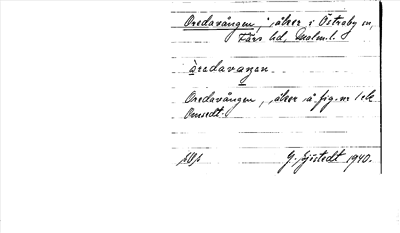 Oredavången, åker i Östraby sn,
Färs hd, Malm. l.
àredavaŋen
Oredavången, åker å fig. nr 1 ek
Omsedt.
G. Sjöstedt 1940.